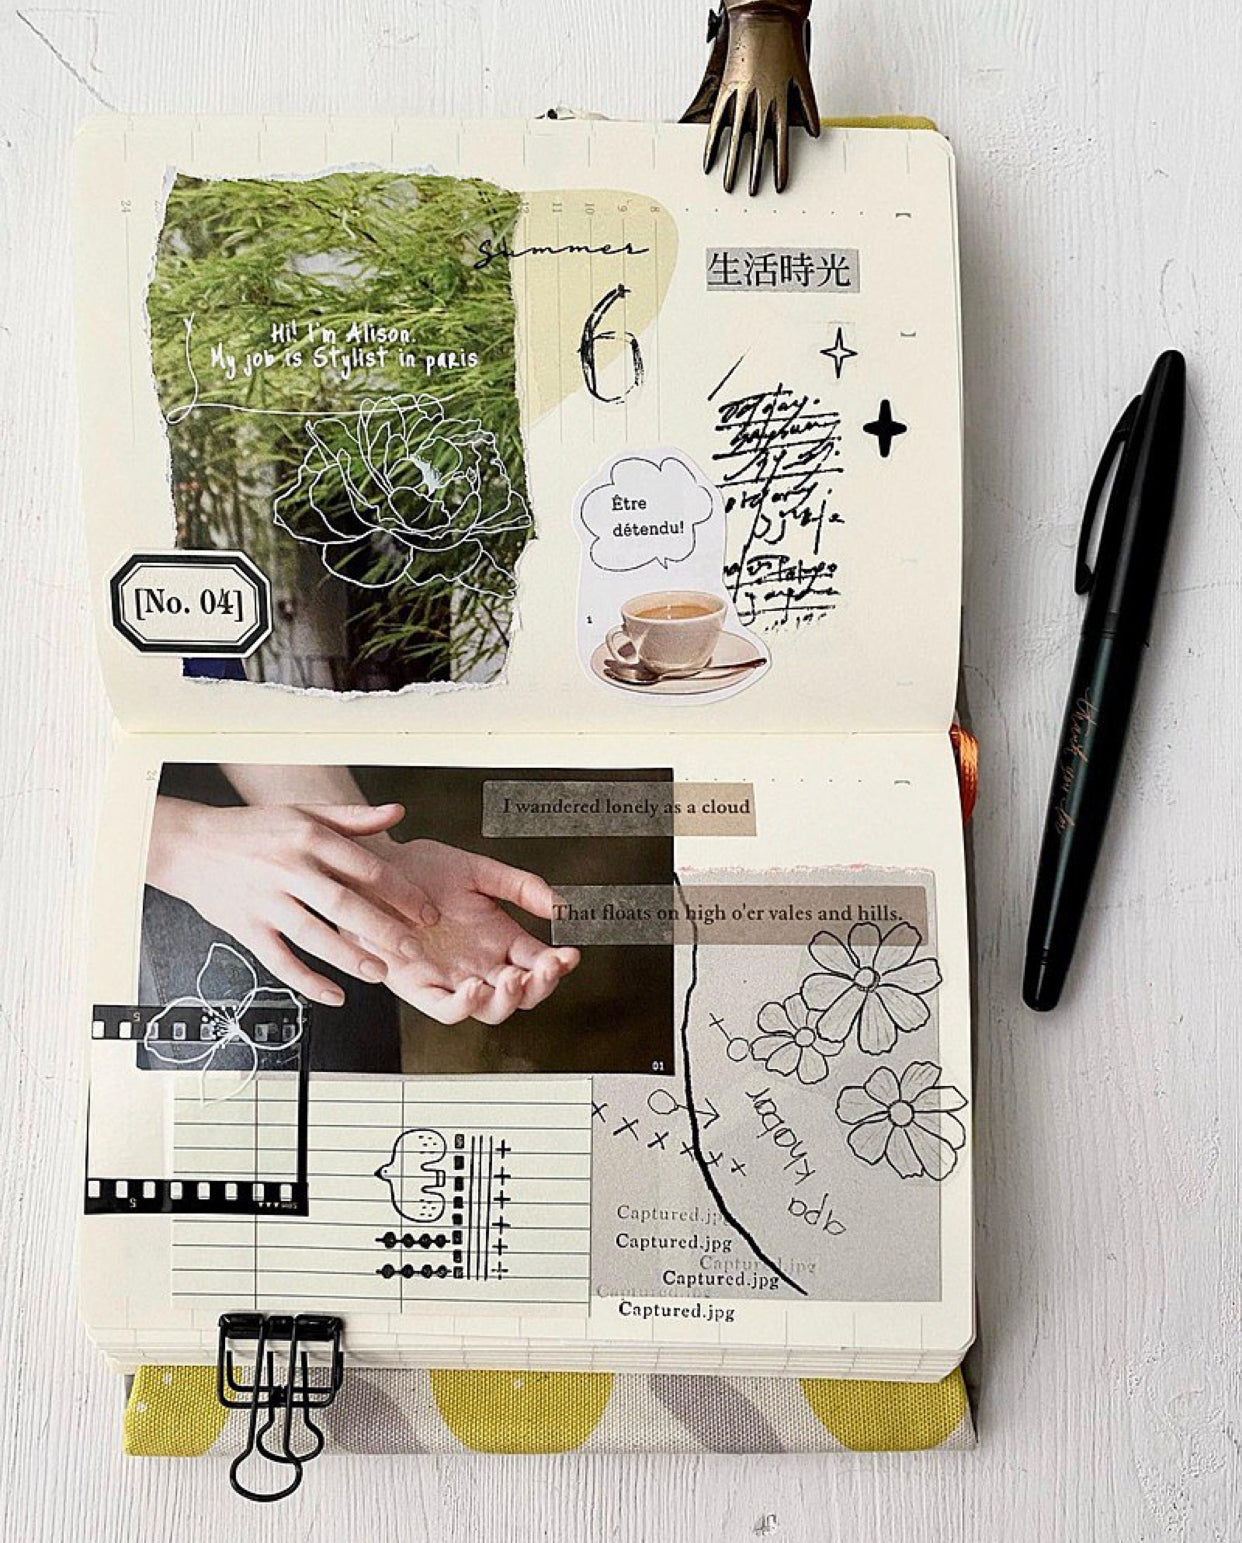 24
12
11
10
9
8
Summer
6
生活時光
Hi! I'm Alison.
My job is Stylist in paris
Être
détendu!
1
[No. 04]
I wandered lonely as a cloud
That floats on high o'er vales and hills.
01
5
5
apa
khabar
Captured.jpg
Captured.jpg
Captured.jpg
Captured.jpg
Captured.jpg